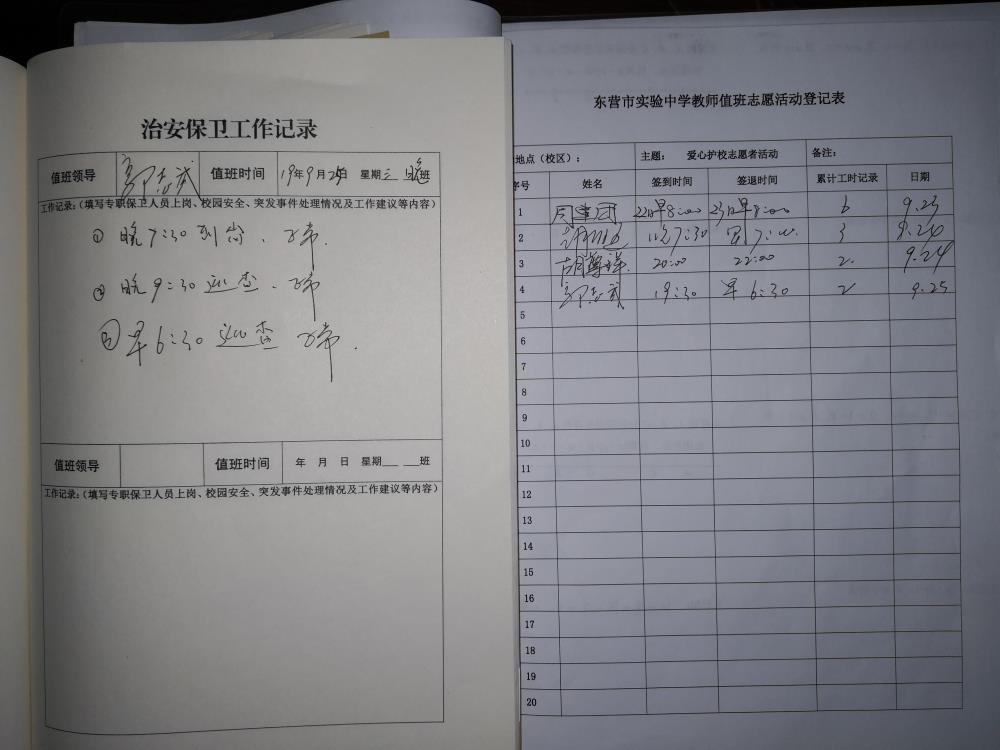 治安保卫工作记录
值班领导 郭志武 值班时间 19年9月25日 星期三 晚班
工作记录：（填写专职保卫人员上岗、校园安全、突发事件处理情况及工作建议等内容）
① 晚7:30到岗、正常.
② 晚9:30巡查、正常
③ 早6:30巡查 正常.
值班领导 值班时间 年 月 日 星期___ ___班
工作记录：（填写专职保卫人员上岗、校园安全、突发事件处理情况及工作建议等内容）
东营市实验中学教师值班志愿活动登记表
地点（校区）： 主题： 爱心护校志愿者活动 备注：
序号 姓名 签到时间 签退时间 累计工时记录 日期
1 周建团 22日早8:00 23日早8:00 6 9.23
2 晚7:30 7:00 3 9.24
3 20:00 22:00 2. 9.24
4 郭志武 19:30 早6:30 2 9.25
5
6
7
8
9
10
11
12
13
14
15
16
17
18
19
20